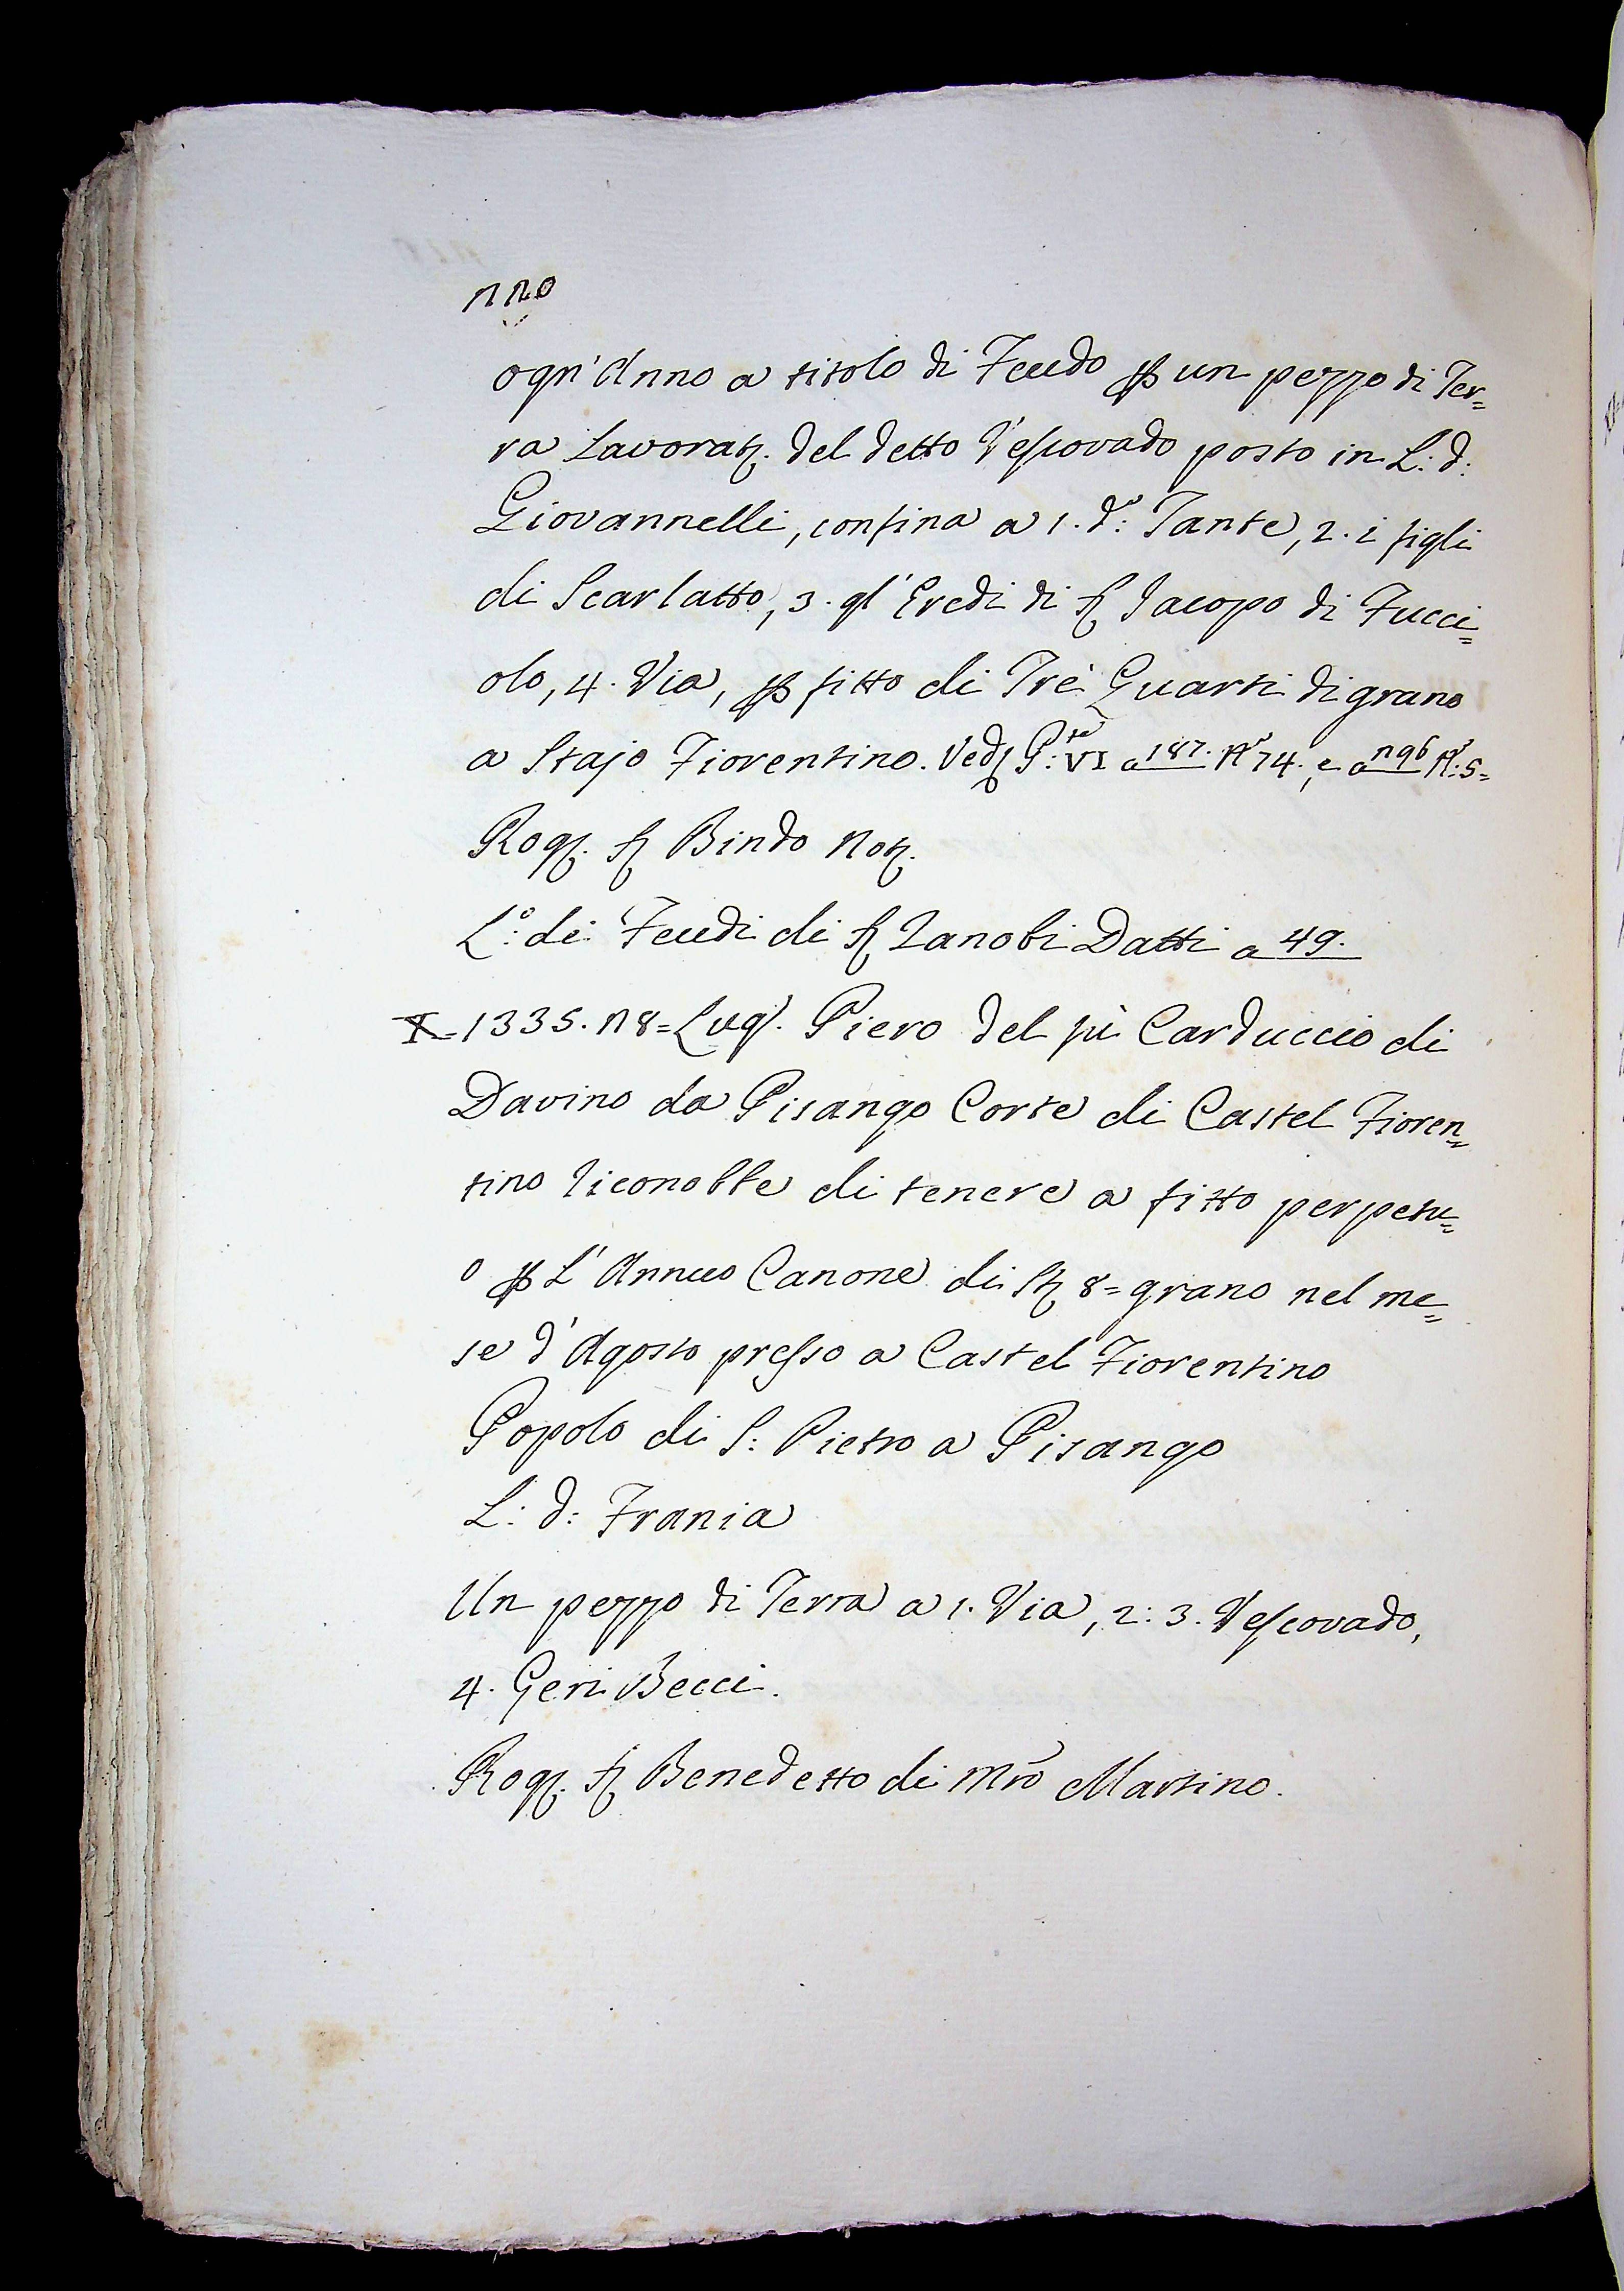 1120
ogn' Anno a titolo di Feudo ꝑ un pezzo di Ter=
ra Lavorat. del detto Vescovado posto in L: d:
Giovannelli, confina a 1. d.° Tante, 2. i figli
di Scarlatto, 3. gl' Eredi di S. Jacopo di Fucci=
olo, 4. Via, ꝑ fitto di Trè Quarti di grano
a Stajo Fiorentino. Ved. P:te VI a 187. N° 74., e a 1196 N°: 5=
Rog. S. Bindo Not.
L°: di Feudi di S. Zanobi Datti a 49.
X=1335. 18= Lug. Piero del fù Carduccio di
Davino da Pisango Corte di Castel Fioren=
tino riconobbe di tenere a fitto perpetu=
o ꝑ L' Annuo Canone di St. 8= grano nel me=
se d' Agosto presso a Castel Fiorentino
Popolo di S: Pietro a Pisango
L: d: Frania
Un pezzo di Terra a 1. Via, 2: 3. Vescovado,
4. Geri Becci.
Rog. S. Benedetto di Mrõ Martino.